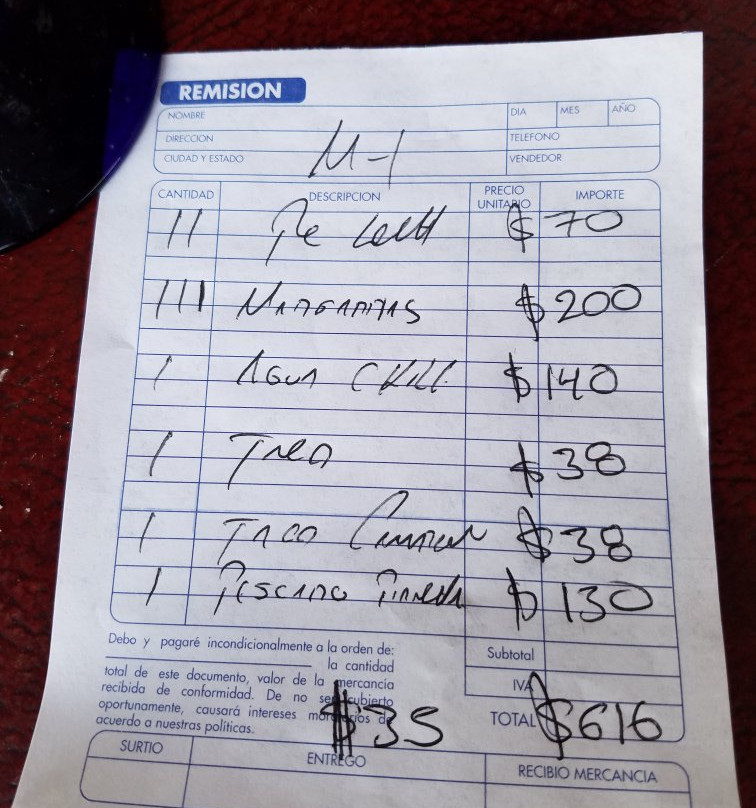 REMISION
NOMBRE DIA MES AÑO
DIRECCION TELEFONO
CIUDAD Y ESTADO M-1 VENDEDOR
CANTIDAD DESCRIPCION PRECIO UNITARIO IMPORTE
II $70
III MARGARITAS $200
1 AGUA $140
1 $38
1 TACO $38
1 PESCADO $130
Debo y pagaré incondicionalmente a la orden de: Subtotal
la cantidad
total de este documento, valor de la mercancia IVA
recibida de conformidad. De no ser cubierto
oportunamente, causará intereses moratorios de TOTAL $616
acuerdo a nuestras politicas. $35
SURTIO ENTREGO RECIBIO MERCANCIA